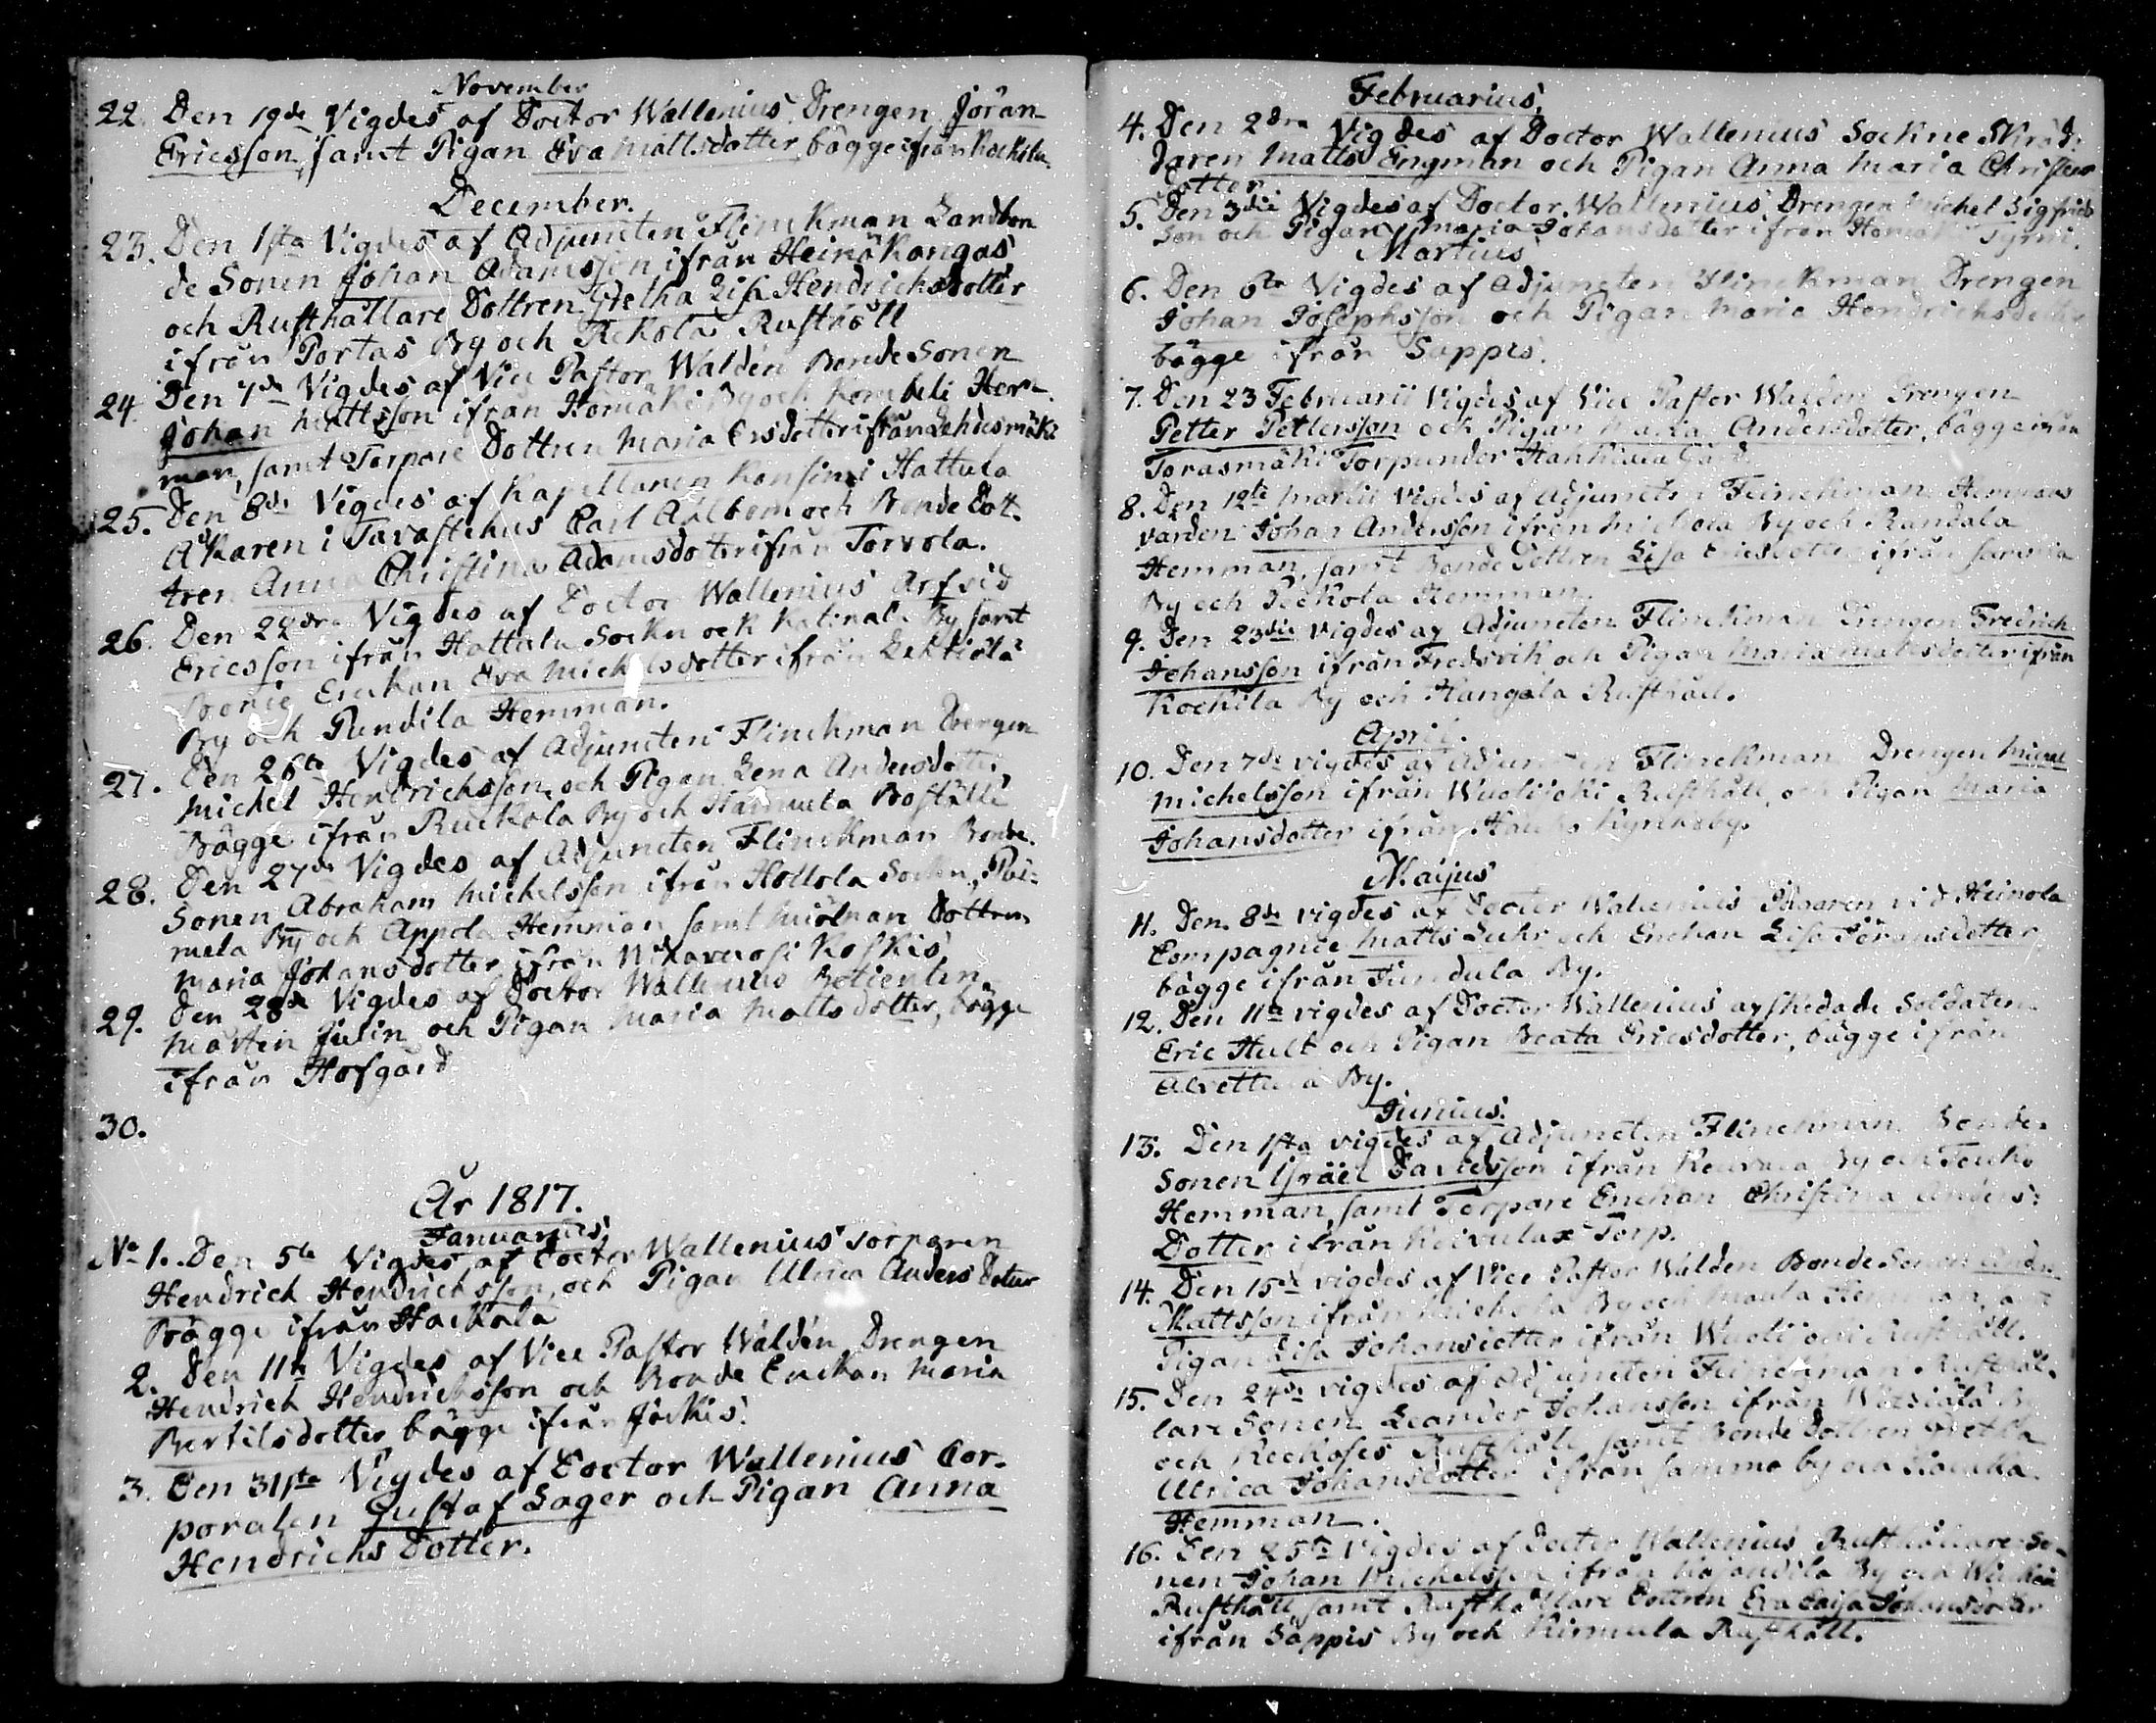 November
22. Den 19de Vigdes af Doctor Wallenius Drengen Jöran
Ericsson, samt Pigan Eva Mattsdotter, bägge ifrån Kockila
December.
23. Den 1sta Vigdes af Adjuncten Flinckman Landbon
de Sonen Johan Adamsson ifrån Heinäkangas
och Rusthållare Dottren Gretha Lisa Hendrichsdotter
ifrån Portas By och Rekola Rusthåll
24. Den 7de Vigdes af Vice Pastor Waldén Bonde Sonen
Johan Mattsson ifrån Homäki By och Kombeli Hem-
man, samt Torpare Dottren Maria Ersdotter ifrån Lehdesmäki
25. Den 8de Vigdes af Kapellanen Konsin i Hattula
Åkaren i Tavastehus Carl Ahlbom och Bonde Dot-
tren Anna Christina Adamsdotter ifrån Torvola.
26. Den 22dra Vigdes af Doctor Wallenius Arfvid
Ericsson ifrån Hattula Sockn och Katinala By samt
Bonde Enckan Eva Michelsdotter ifrån Lehtiölä
By och Pundila Hemman.
27. Den 26te Vigdes af Adjuncten Flinckman Drengen
Michel Hendrichsson och Pigan Lena Andersdotter,
Bägge ifrån Ruckola By och Boställe
28. Den 27de Vigdes af Adjuncten Flinckman Bonde
Sonen Abraham Michelsson ifrån Hollola Sockn, Pai-
mela By och Appola Hemman samt Miölnan Dottren
Maria Johansdotter ifrån Koskis
29. Den 28de Vigdes af Doctor Wallenius Betienten
Mårten Julin och Pigan Maria Mattsdotter, bägge
ifrån Hofgård
30.
År 1817.
Januarius
No 1. Den 5te Vigdes af Doctor Wallenius Torparen
Hendrich Hendrichsson, och Pigan Ulrica Anders Dotter
Bägge ifrån Hackala
2. Den 11te Vigdes af Vice Pastor Waldén Drengen
Hendrich Hendrichsson och Bonde Enckan Maria
Bertilsdotter bägge ifrån Jockis.
3. Den 31sta Vigdes af Doctor Wallenius Cor-
poralen Gustaf Lager och Pigan Anna
Hendrichs Dotter.
Februarius.
4. Den 2dra Vigdes af Doctor Wallenius Sockne Skräd-
daren Matts Engman och Pigan Anna Maria Christers
dotter.
5. Den 3die Vigdes af Doctor Wallenius Drengen Michel Sigfrids
son och Pigan Maria Johansdotter ifrån Homäki Tyrni.
Martius
6. Den 6te Vigdes af Adjuncten Flinckman Drengen
Johan Josephsson och Pigan Maria Hendrichsdotter
bägge ifrån Sappis.
7. Den 23 Februarii Vigdes af Vice Pastor Waldén Drengen
Petter Pettersson och Pigan Maria Andersdotter, bägge ifrån
Torasmäki Torp under Gård.
8. Den 12te Martii Vigdes af Adjuncten Flinckman Hemmans
värden Johan Andersson ifrån Mickola By och Randala
Hemman, samt Bonde Dottren Lisa Ericsdotter ifrån samma
By och Peckola Hemman.
9. Den 23die Vigdes af Adjuncten Flinckman Drengen Fredrich
Johansson ifrån Fredsvik och Pigan Maria Mattsdotter ifrån
Kockila By och Hangala Rusthåll.
April.
10. Den 7de vigdes af Adjuncten Flinckman Drengen Michel
Michelsson ifrån Wuolijoki Rusthåll, och Pigan Maria
Johansdotter ifrån Kyrckoby.
Maijus
11. Den 8de vigdes af Doctor Wallenius vid Heinola
Compagnie Matts Luhr och Enckan Lisa Jöransdotter,
bägge ifrån Tundula By.
12. Den 11te vigdes af Doctor Wallenius afskedade Soldaten
Eric Hult och Pigan Beata Ericsdotter, bägge ifrån
Alvettula By.
Junius.
13. Den 1sta vigdes af Adjuncten Flinckman Bonde-
Sonen Israël Davidsson ifrån By och
Hemman, samt Torpare Enckan Christina Anders-
Dotter ifrån Torp.
14. Den 15de vigdes af Vice Pastor Waldén Bonde Sonen
Mattsson ifrån Mickola By och Hemman, samt
Pigan Lisa Johansdotter ifrån Wuolijoki Rusthåll.
15. Den 24de vigdes af Adjuncten Flinckman Rusthål-
lare Sonen Leander Johansson ifrån By
och Rusthåll, samt Bonde Dottren Gretha
Ulrica Johansdotter ifrån samma by och
Hemman.
16. Den 25te Vigdes af Doctor Wallenius Rusthållare So-
nen Johan Michelsson ifrån By och
Rusthåll, samt Rusthållare Dottren Eva Caisa Johansdotter
ifrån Sappis By och Rimula Rusthåll.